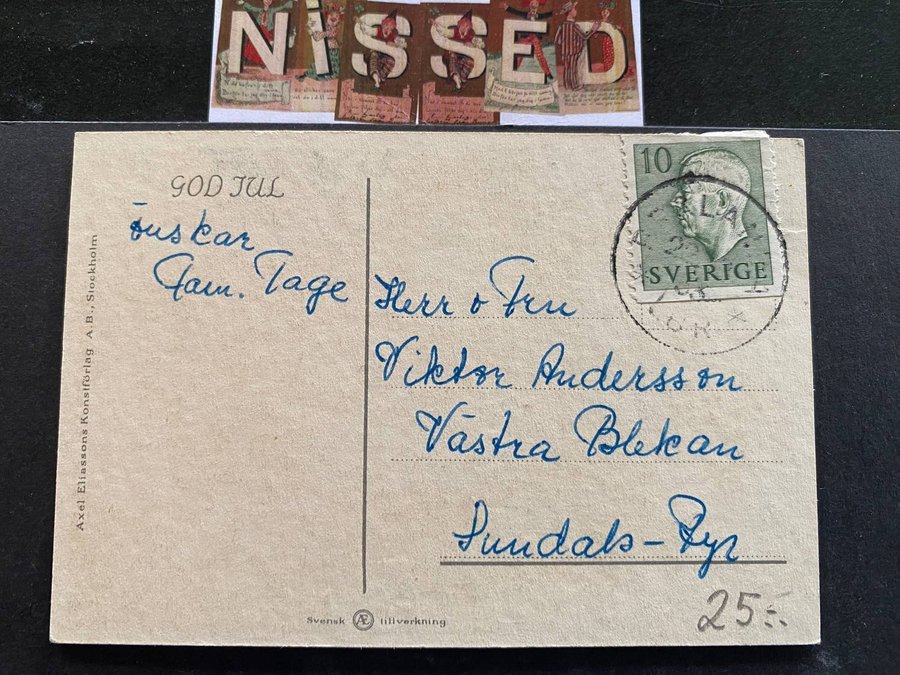 NISSED
GOD JUL
önskar
Fam. Tage
Axel Eliassons Konstförlag A.B., Stockholm
10
SVERIGE
Herr o Fru
Viktor Andersson
Västra Blekan
Sundals-Ryr
Svensk Æ tillverkning
25:-